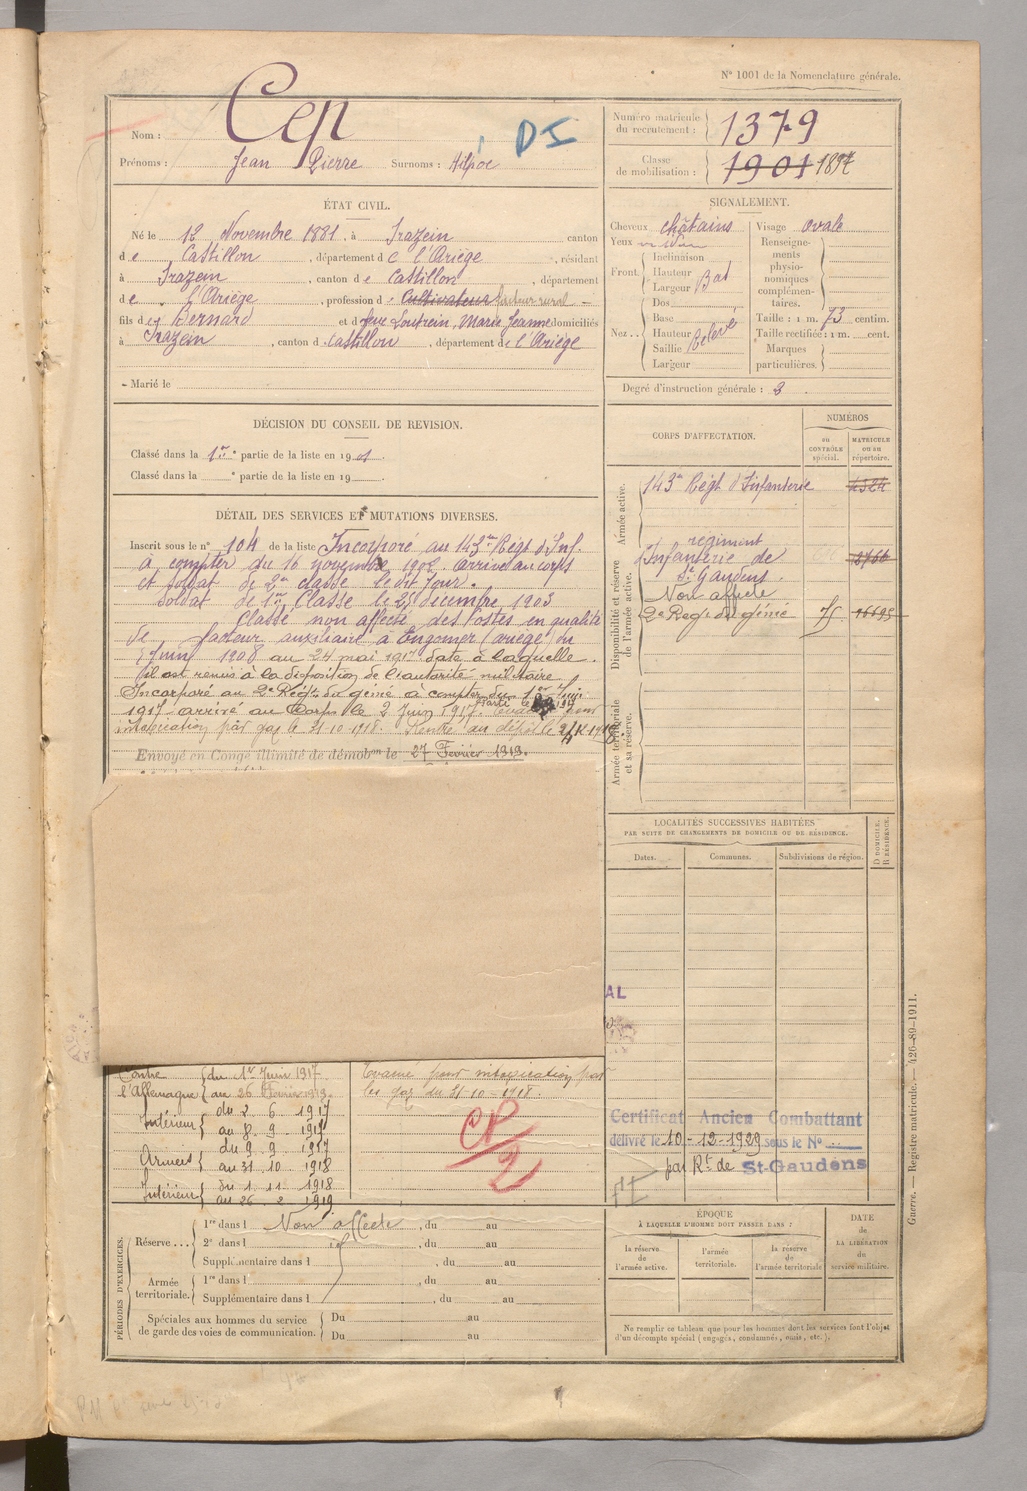 N° 1001 de la Nomenclature générale.
Nom : Cep
DI
Prénoms : Jean Pierre Surnoms :
Numéro matricule du recrutement : 1379
Classe de mobilisation : 1901 1897
ÉTAT CIVIL.
Né le 12 Novembre 1881, à Irazein canton
de Castillon, département de l'Ariège, résidant
à Irazein, canton de Castillon, département
de l'Ariège, profession de Cultivateur facteur rural
fils de Bernard et de feue Soutrein, Marie Jeanne domiciliés
à Irazein, canton de Castillon, département de l'Ariège
Marié le
SIGNALEMENT.
Cheveux châtains Visage ovale
Yeux
Renseignements physionomiques complémentaires.
Front. Inclinaison
Hauteur Bas
Largeur
Nez.. Dos
Base
Hauteur Relevé
Saillie
Largeur
Taille : 1 m. 73 centim.
Taille rectifiée : 1 m. cent.
Marques particulières.
Degré d'instruction générale : 3
DÉCISION DU CONSEIL DE REVISION.
Classé dans la 1re partie de la liste en 1901.
Classé dans la e partie de la liste en 19
CORPS D'AFFECTATION.
NUMÉROS
au CONTRÔLE spécial.
MATRICULE ou au répertoire.
Armée active.
143e Régt d'Infanterie 4524
Disponibilité et réserve de l'armée active.
régiment
Infanterie de
St Gaudens.
Non affecté
2e Reg. du génie 16695
Armée territoriale et sa réserve.
DÉTAIL DES SERVICES ET MUTATIONS DIVERSES.
Inscrit sous le n° 104 de la liste Incorporé au 143me Régt d'Inf.
à compter du 16 novembre 1902 arrivé au corps
et soldat de 2me classe le dit jour.
soldat de 1re Classe le 25 décembre 1903
Classé non affecté des Postes en qualité
de facteur auxiliaire à Engomer (ariège) du
5 Juin 1908 au 24 mai 1917 date à laquelle
il est remis à la disposition de l'autorité militaire
Incorporé au 2e Régt du génie à compter du 1er Juin
1917 arrivé au Corps le 2 Juin 1917. Evacué pour
intoxication par gaz le 31-10-1918. Rentré au dépôt le
Envoyé en Congé illimité de démobon le 27 Février 1919.
LOCALITÉS SUCCESSIVES HABITÉES
PAR SUITE DE CHANGEMENTS DE DOMICILE OU DE RÉSIDENCE.
Dates. Communes. Subdivisions de région. D DOMICILE. R RÉSIDENCE.
AL
Contre l'Allemagne du 1er Juin 1917
au 26 Février 1919.
Intérieur du 2. 6. 1917
au 8. 9. 1917
Armées du 9. 9. 1917
au 31. 10 1918
Intérieur du 1. 11. 1918
au 26. 2. 1919
Evacué pour intoxication par
les gaz du 31-10-1918.
CP/2
Certificat Ancien Combattant
délivré le 10-12-1929 sous le N°
par Rt de St-Gaudens
PÉRIODES D'EXERCICES.
Réserve... 1re dans l Non affecté, du au
2e dans l, du au
Supplémentaire dans l, du au
Armée territoriale. 1re dans l, du au
Supplémentaire dans l, du au
Spéciales aux hommes du service de garde des voies de communication. Du au
Du au
ÉPOQUE
À LAQUELLE L'HOMME DOIT PASSER DANS :
la réserve de l'armée active.
l'armée territoriale.
la réserve de l'armée territoriale
DATE de LA LIBÉRATION du service militaire.
Ne remplir ce tableau que pour les hommes dont les services font l'objet
d'un décompte spécial (engagés, condamnés, omis, etc.).
Guerre. — Registre matricule. — 426-89-1911.